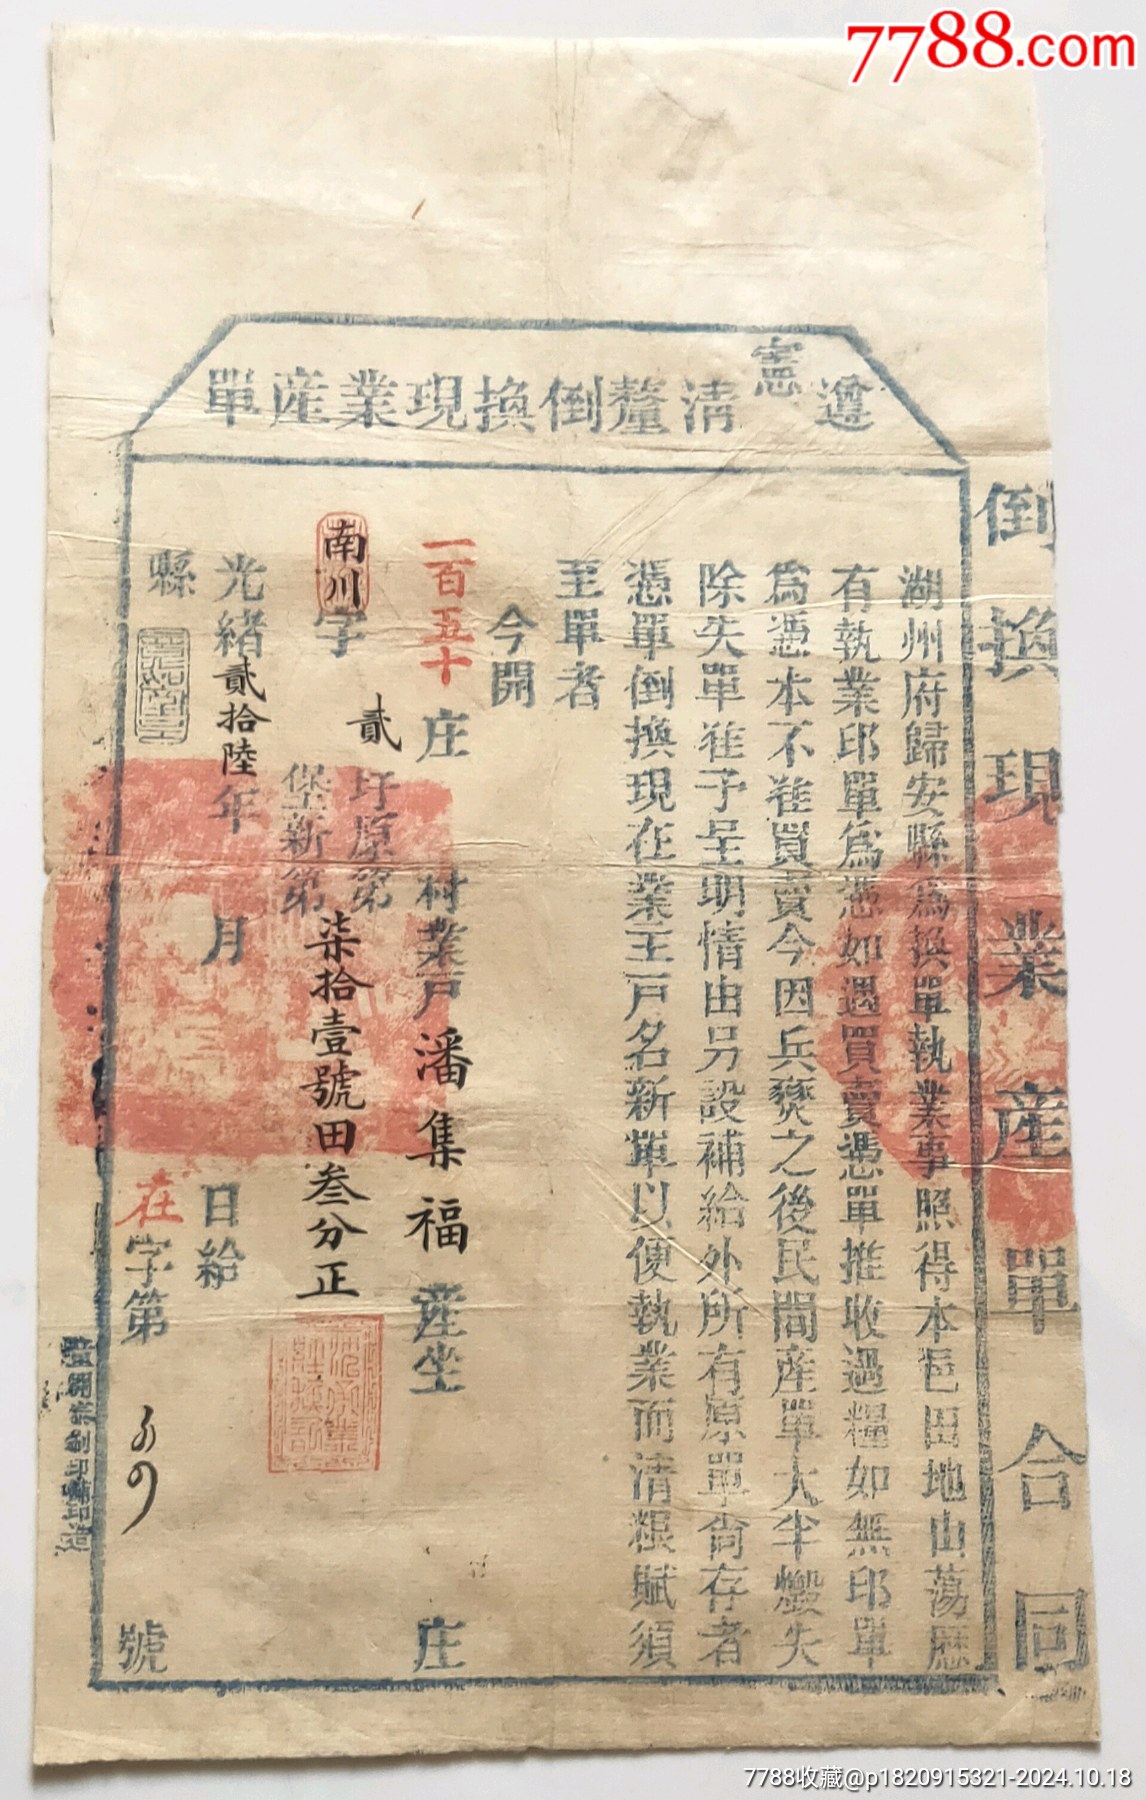 7788.com
遵
憲
清釐倒換現業產單
倒換現業產單合同
湖州府歸安縣為換單執業事照得本邑田地山蕩歷
有執業印單為憑如遇買賣憑單推收過糧如無印單
為憑本不准買賣今因兵燹之後民間產單大半燬失
除失單准予呈明情由另設補給外所有原單尙存者
憑單倒換現在業主戶名新單以便執業而清糧賦須
至單者
今開
一百五十庄 村業戶潘集福產坐 庄
南川字 貳圩原第
保新第 柒拾壹號田叁分正
光緒貳拾陸年 月 日給
縣
在字第 號
7788收藏@p1820915321-2024.10.18